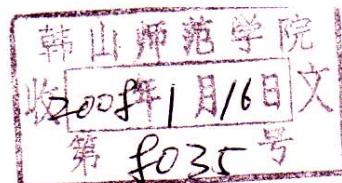 韩山师范学院
收2008年1月16日文
第8035号